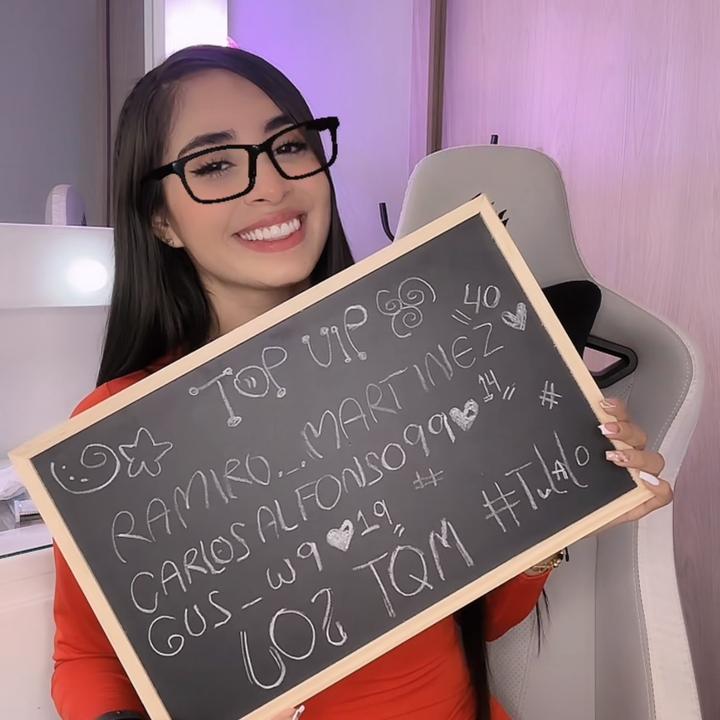 TOP VIP
"40
RAMIRO_._MARTINEZ
CARLOSALFONSO99 14,, #
GUS_W9 19,, #
LOS TQM #TuLaLo